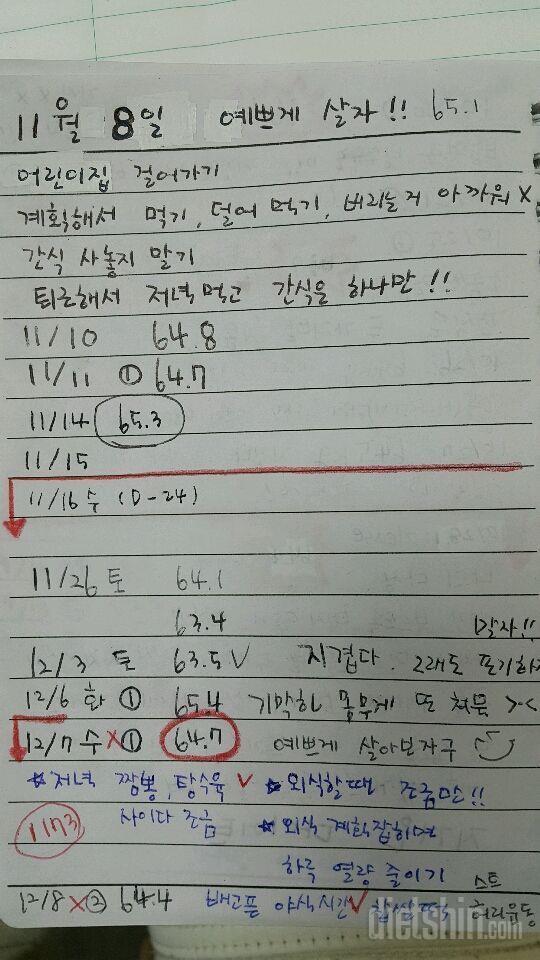 11월 8일 예쁘게 살자!! 65.1
어린이집 걸어가기
계획해서 먹기, 덜어 먹기, 버리는거 아까워 X
간식 사놓지 말기
퇴근해서 저녁먹고 간식은 하나만!!
11/10 64.8
11/11 ① 64.7
11/14 65.3
11/15
11/16 수 (D-24)
11/26 토 64.1
63.4
말자!!
12/3 토 63.5 V 지겹다. 그래도 포기하지
12/6 화 ① 65.4 기막힌 몸무게 또 처묵 ><
12/7 수 X ① 64.7 예쁘게 살아보자구
☆ 저녁 짬뽕, 탕수육 V ☆ 외식할때 조금만으!!
1173 사이다 조금 ☆ 외식 계획잡히면
하루 열량 줄이기
스트
12/8 X ② 64.4 배고픈 야식시간 V 찹쌀떡 허리운동
dietshin.com